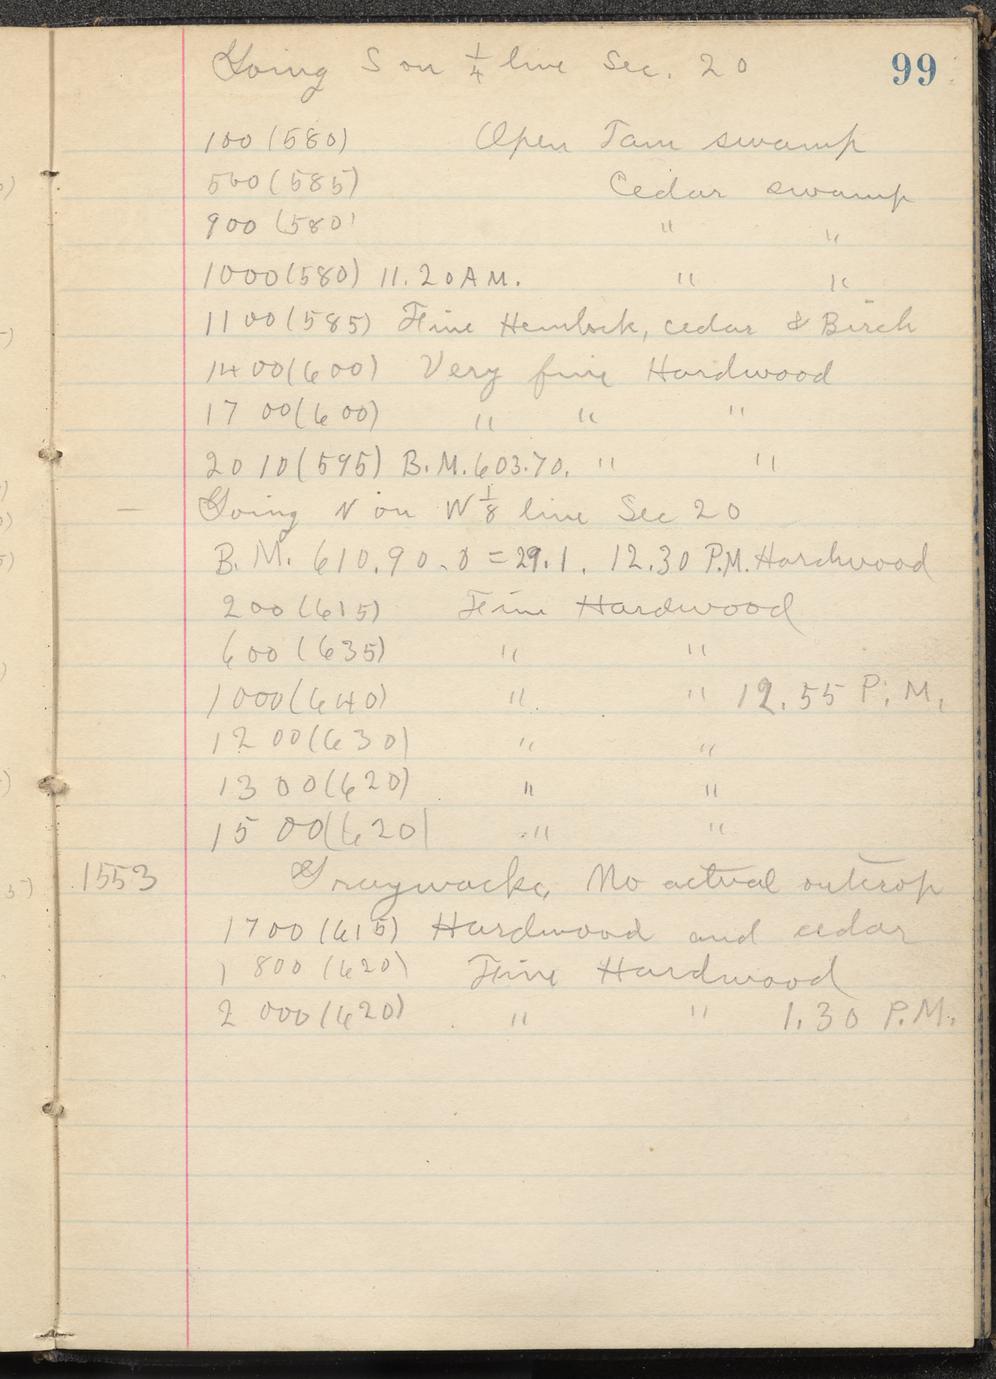 99
Going S on 1/4 line Sec. 20
100 (580) Open Tam swamp
500 (585) Cedar swamp
900 (580) " "
1000 (580) 11.20 A.M. " "
1100 (585) Fine Hemlock, cedar & Birch
1400 (600) Very fine Hardwood
1700 (600) " " "
2010 (595) B.M. 603.70. " "
— Going N on W 1/8 line Sec 20
B.M. 610.90. 0 = 29.1. 12.30 P.M. Hardwood
200 (615) Fine Hardwood
600 (635) " "
1000 (640) " " 12.55 P.M.
1200 (630) " "
1300 (620) " "
1500 (620) " "
1553 Graywacke, No actual outcrop
1700 (615) Hardwood and cedar
1800 (620) Fine Hardwood
2000 (620) " " 1.30 P.M.